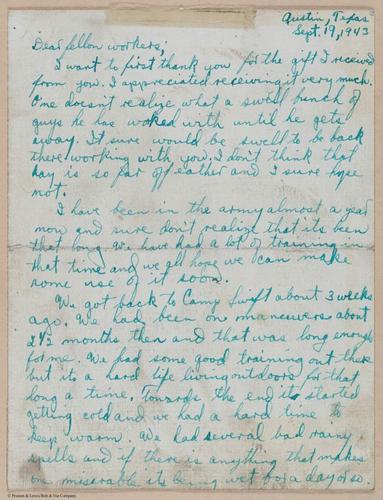 Austin, Texas
Sept. 19, 1943
Dear fellow workers;
I want to first thank you for the gift I received
from you. I appreciated receiving it very much.
One doesn't realize what a swell bunch of
guys he has worked with until he gets
away. It sure would be swell to be back
there working with you. I don't think that
day is so far off eather and I sure hope
not.
I have been in the army almost a year
now and sure don't realize that its been
that long. We have had a lot of training in
that time and we all hope we can make
some use of it soon.
We got back to Camp Swift about 3 weeks
ago. We had been on maneuvers about
2 1/2 months then and that was long enough
for me. We had some good training out there
but its a hard life living outdoors for that
long a time. Towards the end its started
getting cold and we had a hard time to
keep warm. We had several bad rainy
spells and if there is anything that makes
one miserable its being wet for a day or so.
© Pearson & Lewis Bolt & Nut Company